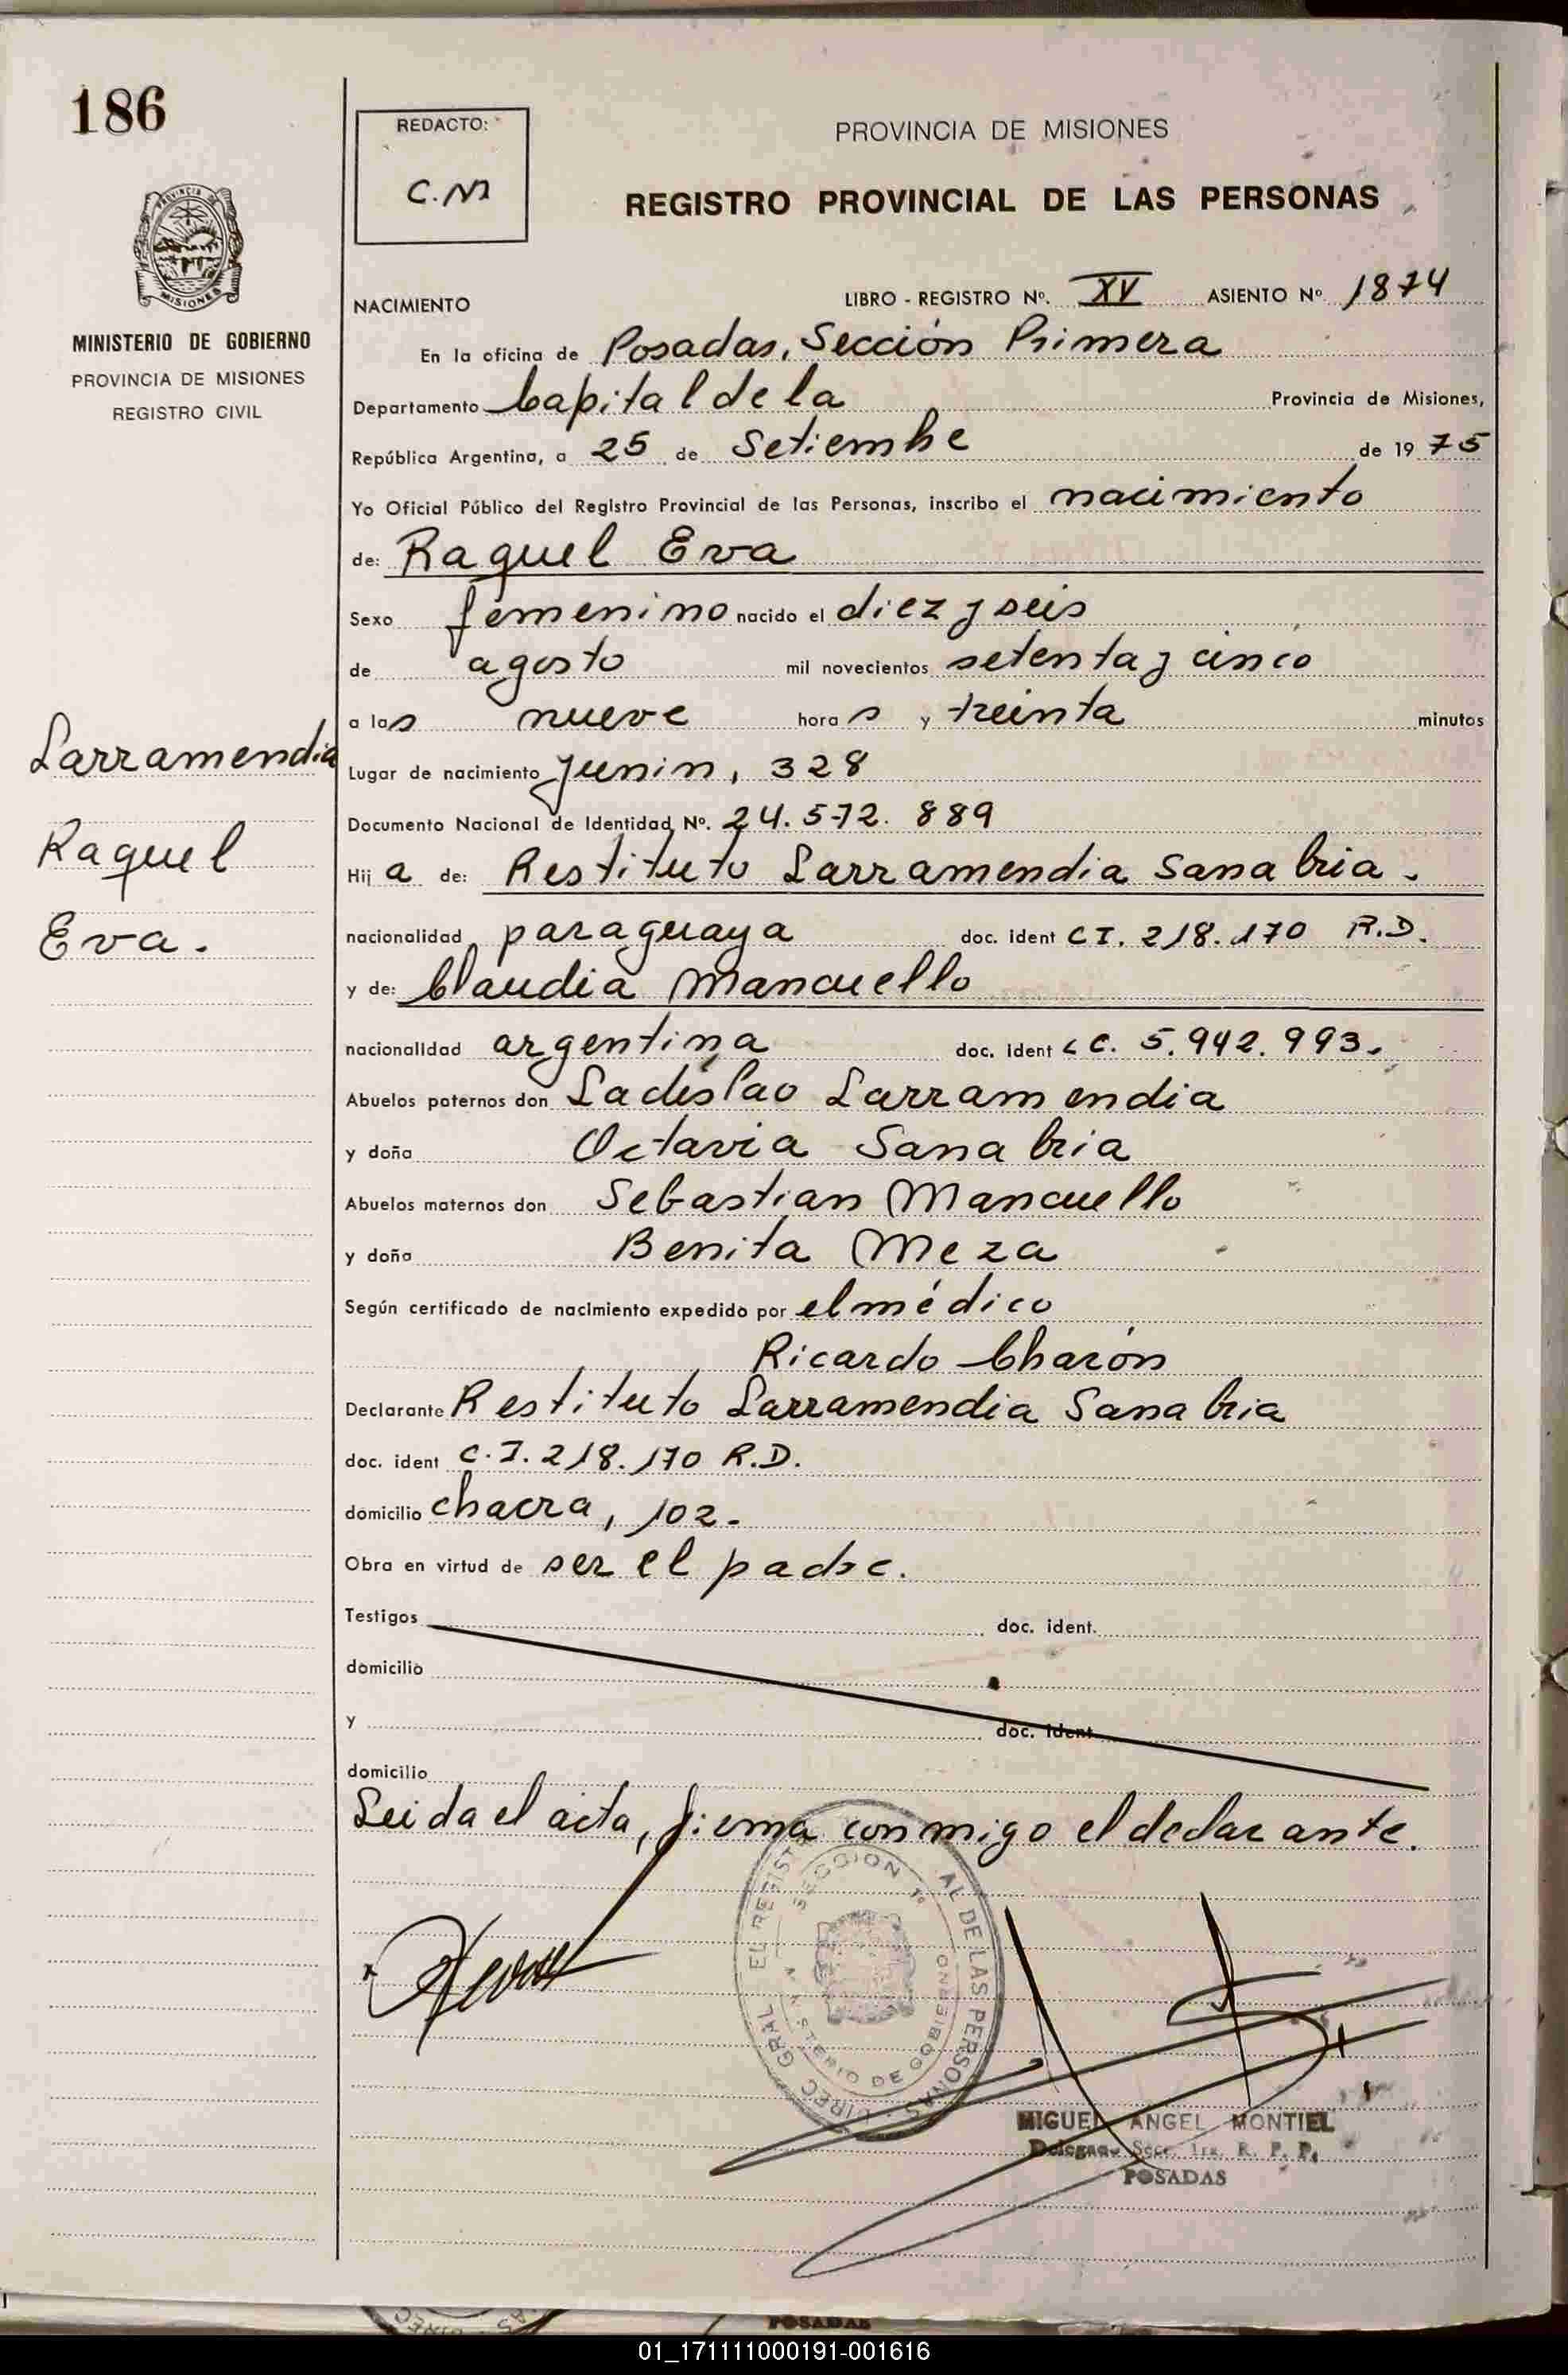 186
REDACTO:
C.M
PROVINCIA DE MISIONES
REGISTRO PROVINCIAL DE LAS PERSONAS
PROVINCIA
MISIONES
MINISTERIO DE GOBIERNO
PROVINCIA DE MISIONES
REGISTRO CIVIL
NACIMIENTO LIBRO - REGISTRO Nº. XV ASIENTO Nº 1874
En la oficina de Posadas, Sección Primera
Departamento Capital de la Provincia de Misiones,
República Argentina, a 25 de Setiembre de 1975
Yo Oficial Público del Registro Provincial de las Personas, inscribo el nacimiento
de: Raquel Eva
Sexo femenino nacido el diez y seis
de agosto mil novecientos setenta y cinco
a las nueve horas y treinta minutos
Larramendia
Raquel
Eva.
Lugar de nacimiento Junin, 328
Documento Nacional de Identidad Nº. 24.572.889
Hija de: Restituto Larramendia Sanabria.
nacionalidad paraguaya doc. ident CI. 218.170 R.D.
y de: Claudia Mancuello
nacionalidad argentina doc. ident LC. 5.942.993.
Abuelos paternos don Ladislao Larramendia
y doña Octavia Sanabria
Abuelos maternos don Sebastian Mancuello
y doña Benita Meza
Según certificado de nacimiento expedido por el médico
Ricardo Charón
Declarante Restituto Larramendia Sanabria
doc. ident C.I. 218.170 R.D.
domicilio chacra, 102.
Obra en virtud de ser el padre.
Testigos doc. ident.
domicilio
y doc. ident
domicilio
Leida el acta, firma conmigo el declarante.
SECCION 1º
AL DE LAS PERSONAS
DIREC GRAL EL REGIST
DE GOBIERNO
MIGUEL ANGEL MONTIEL
Secc. 1ra. R. P. P.
POSADAS
POSADAS
01_171111000191-001616